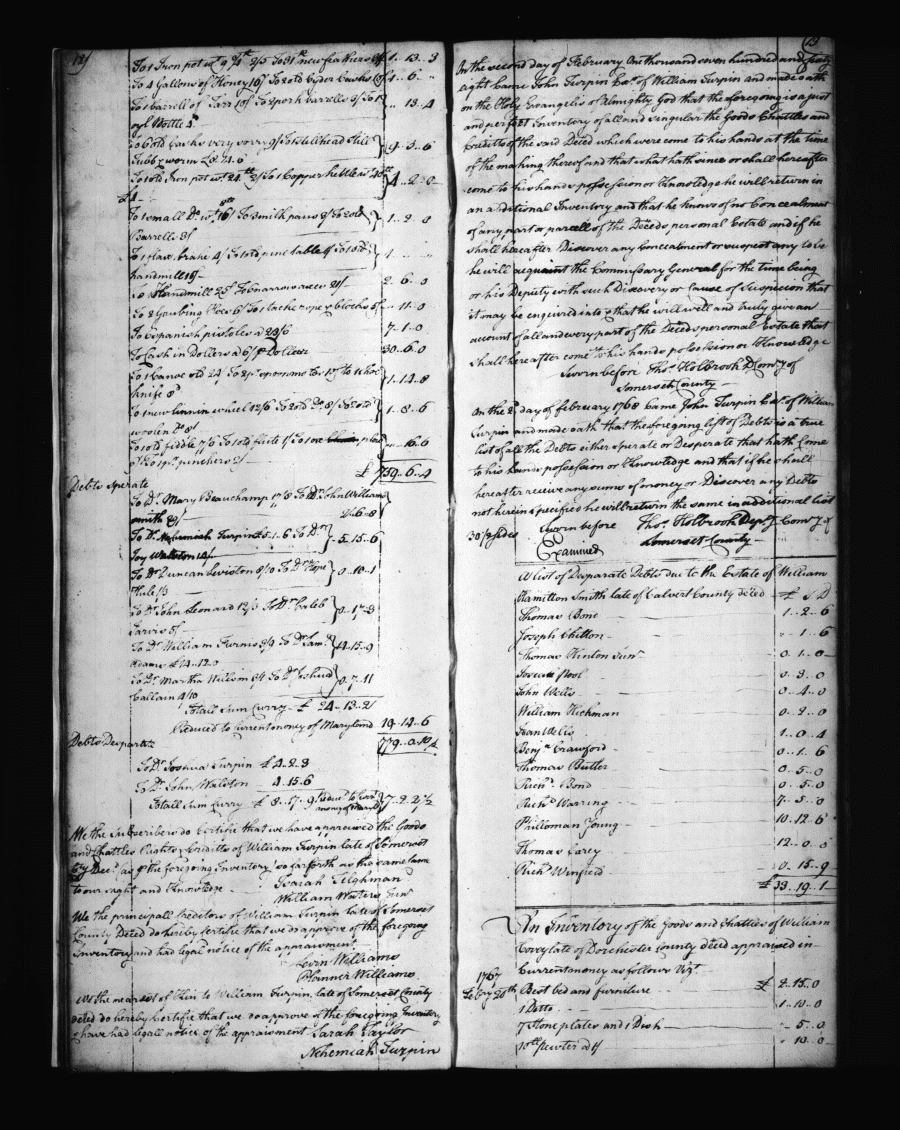 12/
To 1 Iron pot wt 9 2/5 To 31 new feathers 1..13..3
To 4 Gallons of Honey 16/ To 2 old Cyder Casks 1..6..„
To 1 barrell of Tarr 10/ To 2 pork barrells 8/ To 1 „..13..4
oyl Bottle 4d
To 6 old Casks very sorry 9/ To still head still
Tubb & worm 9..3..6
To 1 old Iron pot wt 24 2/ To 1 Copper kettle wt 40 4..2..0
£4
To 1 small Do wt 16/ To 3 milk pans 3/ To 2 old 1..2..0
Barrells 3/
To 1 flax brake 4/ To 1 old pine table 1/ To 1 old 1..„..„
handmill 15/
To 1 Handmill 25/ To 3 narrow axes 21/ 2..6..0
To 2 Grubing Hoes 6/ To 1 tackle rope & blocks 5/ „..11..0
To 6 Spanish pistoles a 23/6 7..1..0
To Cash in Dollers a 6/ pr Doller 30..6..0
To 1 Canoe old 24/ To 2 pr spoons to 10/ to 1 hoe 1..14..8
knife 8d
To 1 new linnin wheel 12/6 To 2 old Do 8/ To 2 old 1..8..6
woolen Do 8/
To 1 old fiddle 7/6 To 1 old flute 1/ To 1 „..16..6
pinchers 2/
£ 759..6..4
Debts sperate
To Dr Mary Beauchamp 17/6 To Dr John William
smith 2..6..8
To Dr Nehemiah Turpin £5..1..6 To Dr 5..15..6
Joy Walston 14/
To Dr Duncan Leviston 8/10 To Dr Hope 0..10..1
Hale 1/3
To Dr John Leonard 12/3 To Dr Caleb 0..17..3
Jarvis 5/
To Dr William Furnis 3/9 To Dr Sam. 14..15..9
Adams £14..12..0
To Dr Martha Wilson 3/1 To Dr Joshua 0..7..11
Callain 4/10
Totall Sum Curry £ 24..13..2
Reduced to Current money of Maryland 19..14..6
779..0..10
Debts Desparate
To Dr Joshua Turpin £4..2..3
To Dr John Walston 4..15..6
Totall sum Curry £8..17..9 Reducd to Curt money of Maryd 7..2..2½
We the Subscribers do Certifie that we have appraised the Goods
and Chattles Rights & Credits of William Turpin late of Somerset
Cty Decd as pr the foregoing Inventory so far forth as the same came
to our sight and knowledge
Isaiah Tilghman
William Waters Junr
We the principall Creditors of William Turpin late of Somerset
County Deced do hereby certifie that we do approve of the foregoing
Inventory and had legal notice of the appraisment
Levin Williams
Planner Williams
We the nearest of Kin to William Turpin late of Somerset County
deced do hereby Certifie that we do approve of the foregoing Inventory
& have had legall notice of the appraisment Sarah Taylor
Nehemiah Turpin
13
On the second day of February One thousand seven hundred and sixty
eight Came John Turpin Exr of William Turpin and made oath
on the Holy Evangelis of Almighty God that the foregoing is a just
and perfect Inventory of all and singular the Goods Chattles and
Creditts of the said Deced which were come to his hands at the time
of the making thereof and that what hath since or shall hereafter
come to his hands possession or Knowledge he will return in
an additional Inventory and that he knows of no Concealment
of any part or parcell of the Deceds personal Estate and if he
shall hereafter Discover any Concealment or suspect any to be
he will acquaint the Commissary General for the time being
or his Deputy with such Discovery or Cause of Suspicion that
it may be enquired into & that he will well and truly give an
account of all and every part of the Deceds personal Estate that
shall hereafter come to his hands possession or Knowledge
Sworn before Thos Holbrook D Comry of
Somerset County
On the 2d day of february 1768 Came John Turpin Exr of William
Turpin and made oath that the foregoing list of Debts is a true
list of all the Debts either sperate or Desperate that hath Come
to his hands possession or Knowledge and that if he shall
hereafter receive any sums of money or Discover any Debts
not herein specified he will return the same in additional list
30½ sides Sworn before Thos Holbrook Depty Comry of
Examined Somerset County
A list of Desparate Debts due to the Estate of William
Hamilton Smith late of Calvert County deced £ S D
Thomas Bond 1..2..6
Joseph Chitton „..1..6
Thomas Hinton Junr 0..1..0
0..3..0
John Wells 0..4..0
William Hickman 0..2..0
Jean Wells 1..0..4
Benja Crawford 0..1..6
Thomas Butler 0..5..0
Richd Bond 0..5..0
Richd Warring 7..5..0
Philloman Young 10..12..6
Thomas Carey 12..0..5
Richd Winfield 0..15..9
£ 33..19..1
An Inventory of the Goods and Chattles of William
Covey late of Dorchester County deced appraised in
Current money as follows Vizt
1767
Febry 26th Best bed and furniture £ 2..15..0
1 Ditto 1..10..0
7 Stone plates and 1 Dish „..5..0
10 lb pewter a 1/ „..10..0